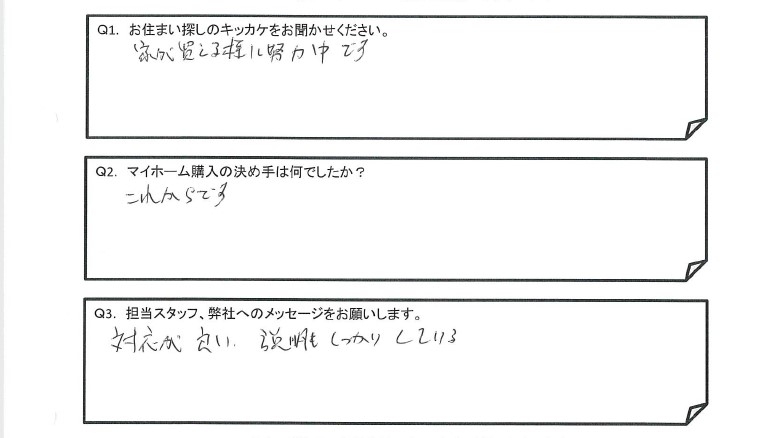 Q1. お住まい探しのキッカケをお聞かせください。
家が買える様に努力中です
Q2. マイホーム購入の決め手は何でしたか？
これからです
Q3. 担当スタッフ、弊社へのメッセージをお願いします。
対応が良い、説明もしっかりしている